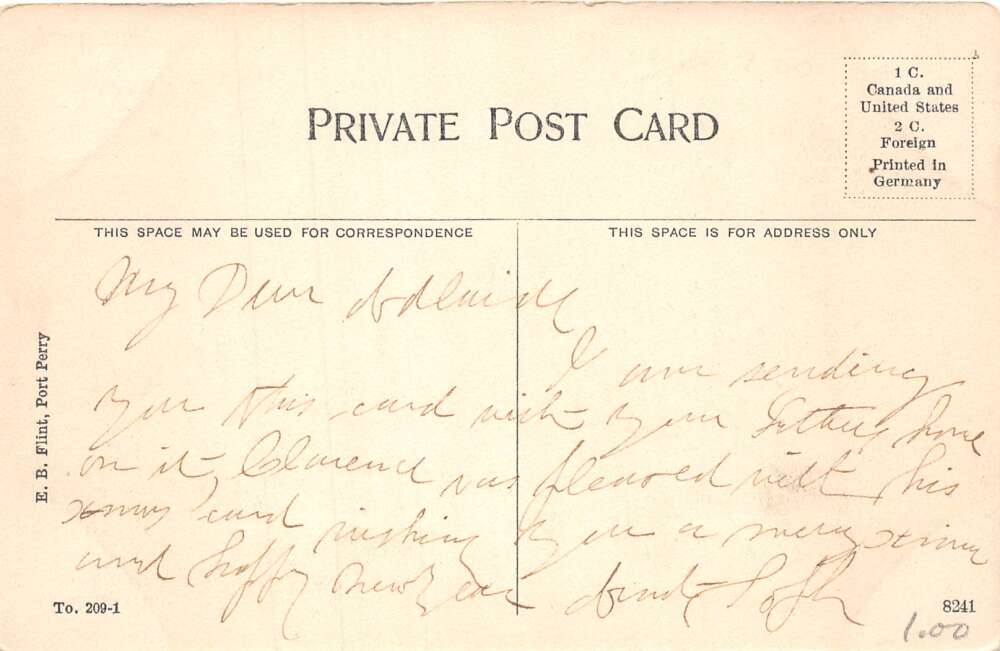 PRIVATE POST CARD
1 C.
Canada and
United States
2 C.
Foreign
Printed in
Germany
THIS SPACE MAY BE USED FOR CORRESPONDENCE
THIS SPACE IS FOR ADDRESS ONLY
E. B. Flint, Port Perry
My Dear Adelaide
I am sending
you this card with your Fathers home
on it Clarence was pleased with his
xmas card wishing you a merry xmas
and happy New Year Aunt
To. 209-1
8241
1.00